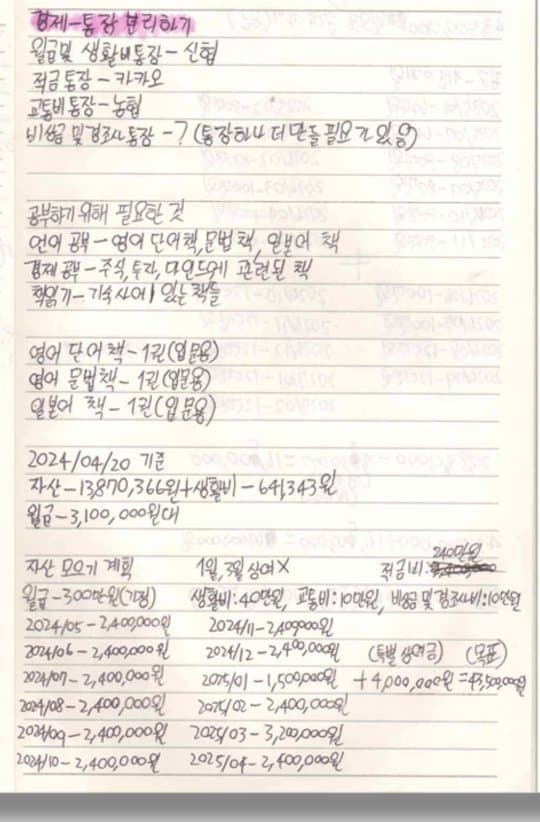 경제-통장 분리하기
월급 및 생활비통장 - 신협
적금통장 - 카카오
교통비통장 - 농협
비상금 및 경조사 통장 - ? (통장 하나 더 만들 필요가 있음)
공부하기 위해 필요한 것
언어 공부 - 영어 단어책, 문법 책, 일본어 책
경제 공부 - 주식, 투자, 마인드에 관련된 책
책읽기 - 기숙사에 있는 책들
영어 단어 책 - 1권 (입문용)
영어 문법책 - 1권 (입문용)
일본어 책 - 1권 (입문용)
2024/04/20 기준
자산 - 13,870,366원 + 생활비 - 641,343원
월급 - 3,100,000원대
자산 모으기 계획 1월, 3월 상여 X 적금비: 240만원
월급 - 300만원(가정) 생활비: 40만원, 교통비: 10만원, 비상금 및 경조사비: 10만원
2024/05 - 2,400,000원 2024/11 - 2,400,000원
2024/06 - 2,400,000원 2024/12 - 2,400,000원 (특별 상여금) (목표)
2024/07 - 2,400,000원 2025/01 - 1,500,000원 + 4,000,000원 = 43,500,000원
2024/08 - 2,400,000원 2025/02 - 2,400,000원
2024/09 - 2,400,000원 2025/03 - 3,200,000원
2024/10 - 2,400,000원 2025/04 - 2,400,000원